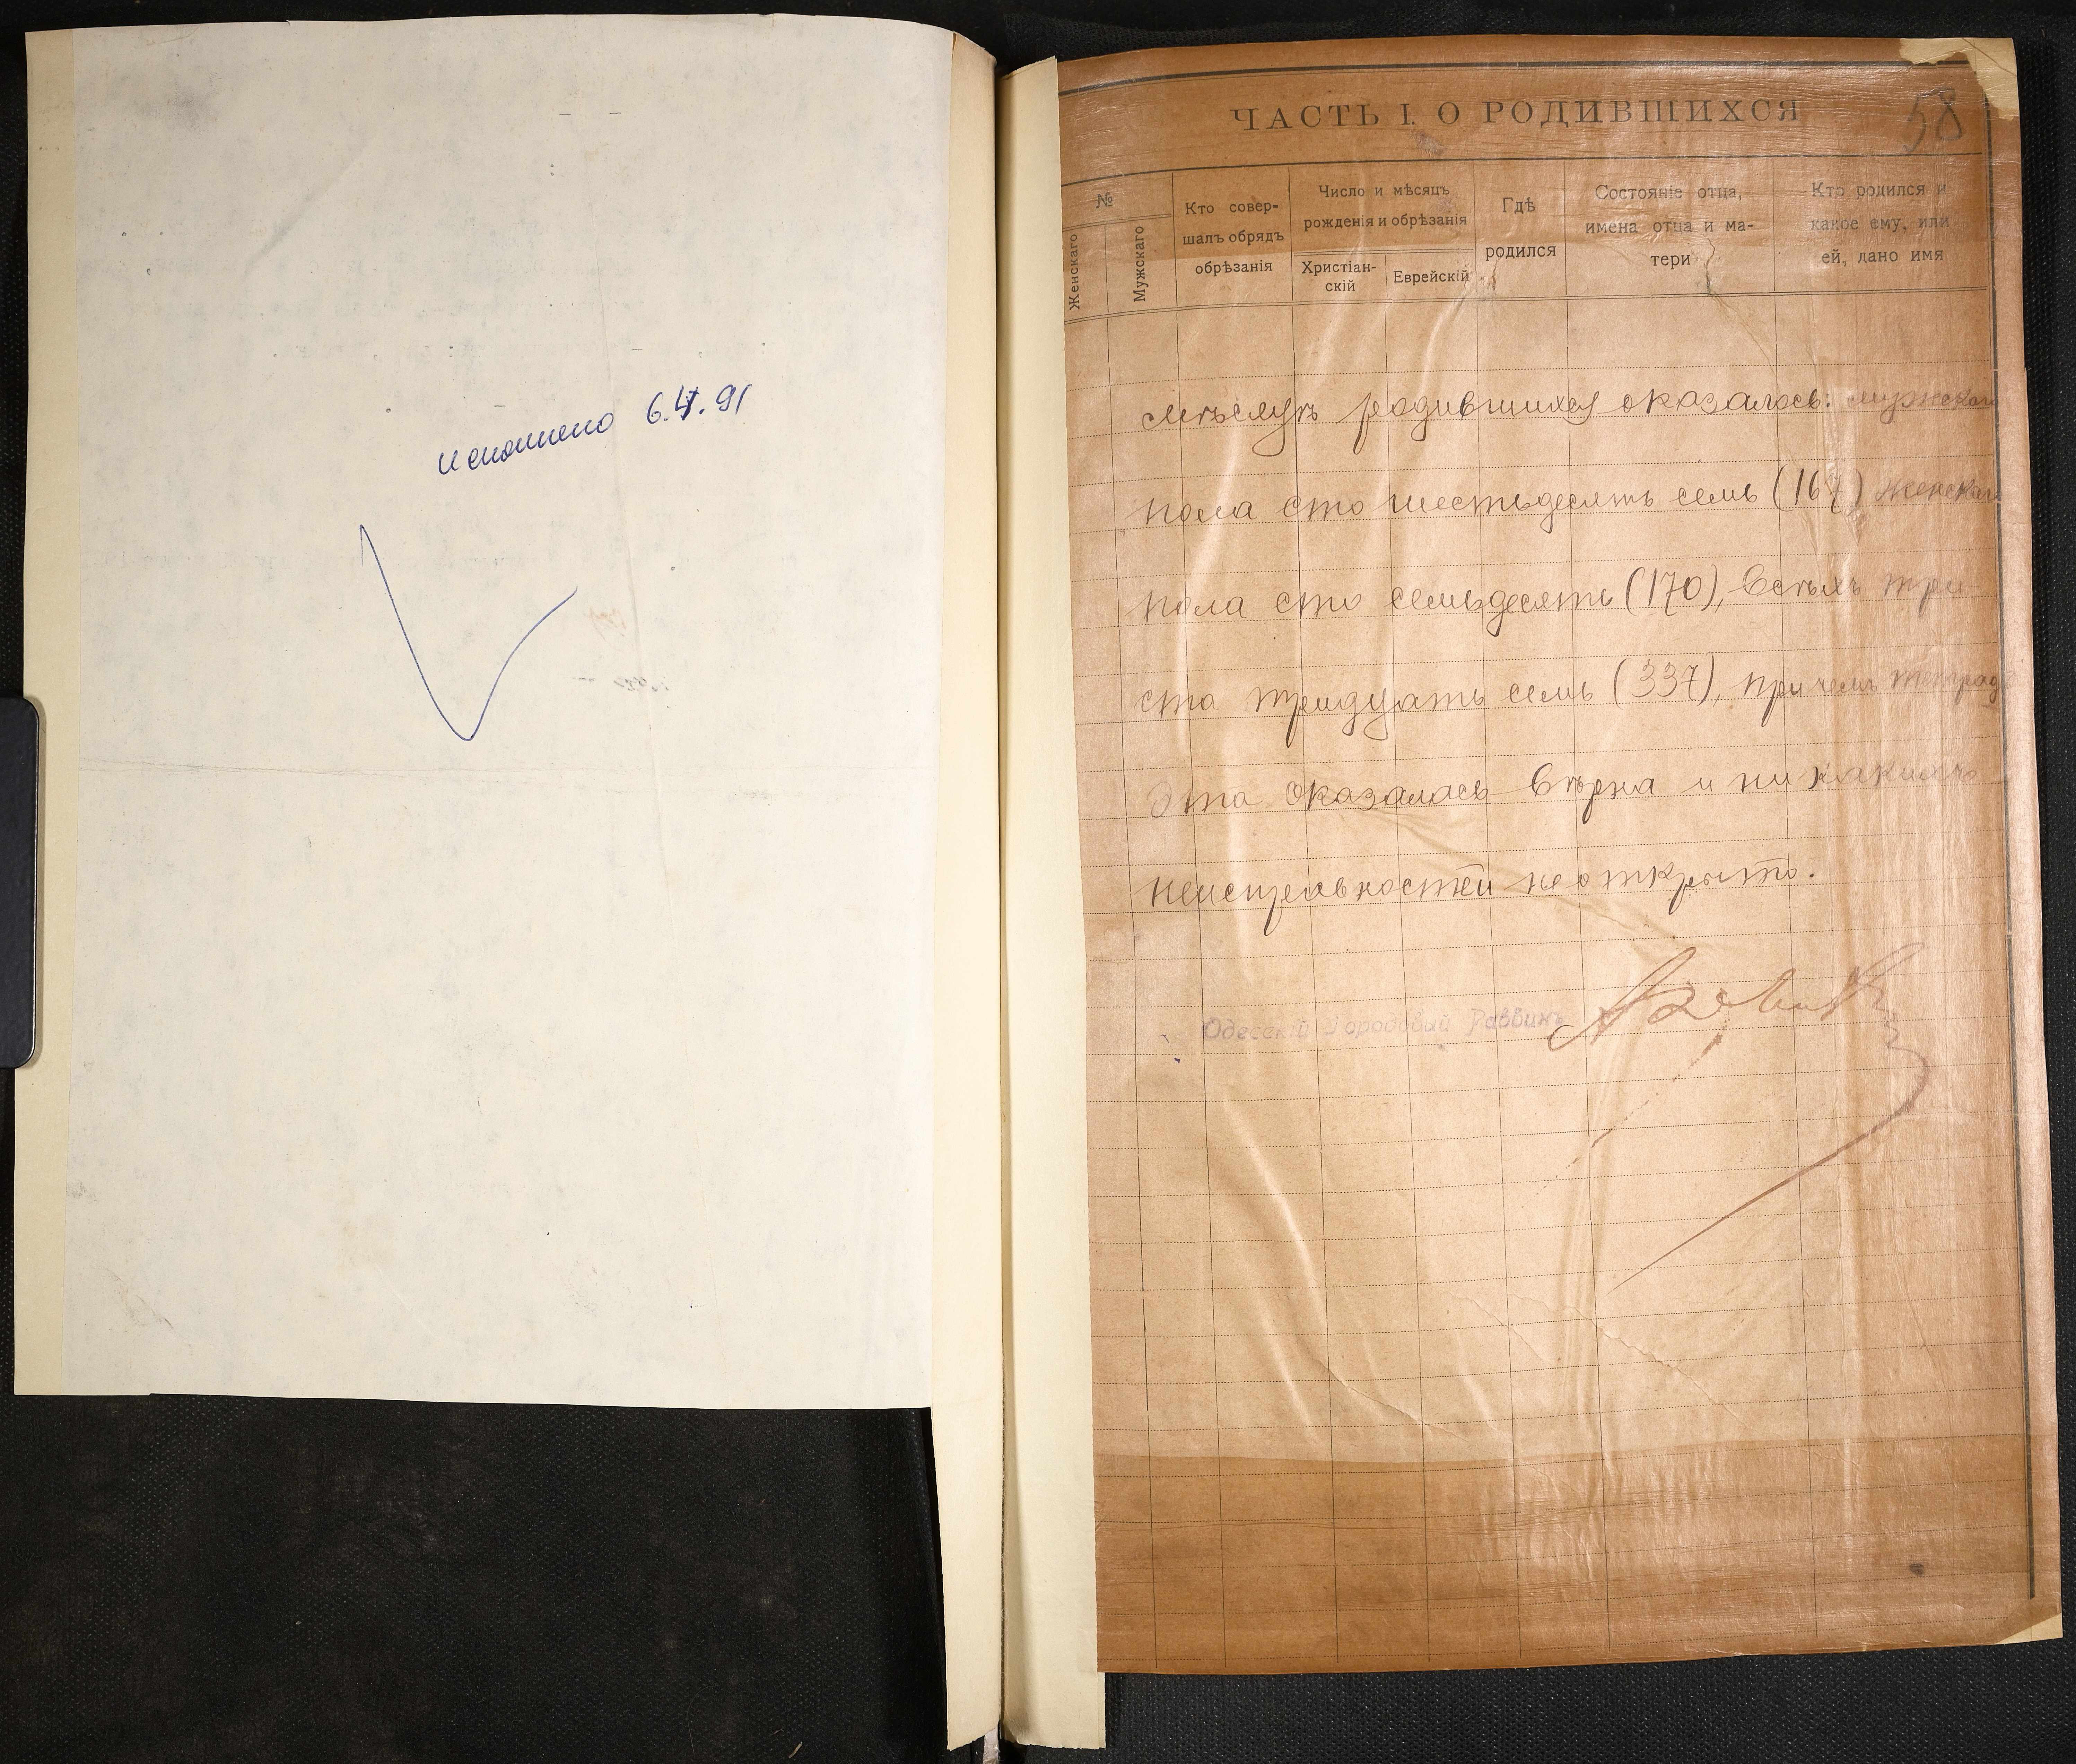 исполнено 6.4.91
ЧАСТЬ I. О РОДИВШИХСЯ
58
№
Женскаго
Мужскаго
Кто совер-
шалъ обрядъ
обрѣзанія
Число и мѣсяцъ
рожденія и обрѣзанія
Христіан-
скій
Еврейскій
Гдѣ
родился
Состояніе отца,
имена отца и ма-
тери
Кто родился и
какое ему, или
ей, дано имя
родившихся оказалось: мужскаго
пола сто шестьдесятъ семь (167) женскаго
пола сто семьдесятъ (170), всѣхъ три
ста тридцать семь (337), при чемъ тетрадь
эта оказалась вѣрна и никакихъ
неисправностей не открыто.
Одесскій Городовый Раввинъ